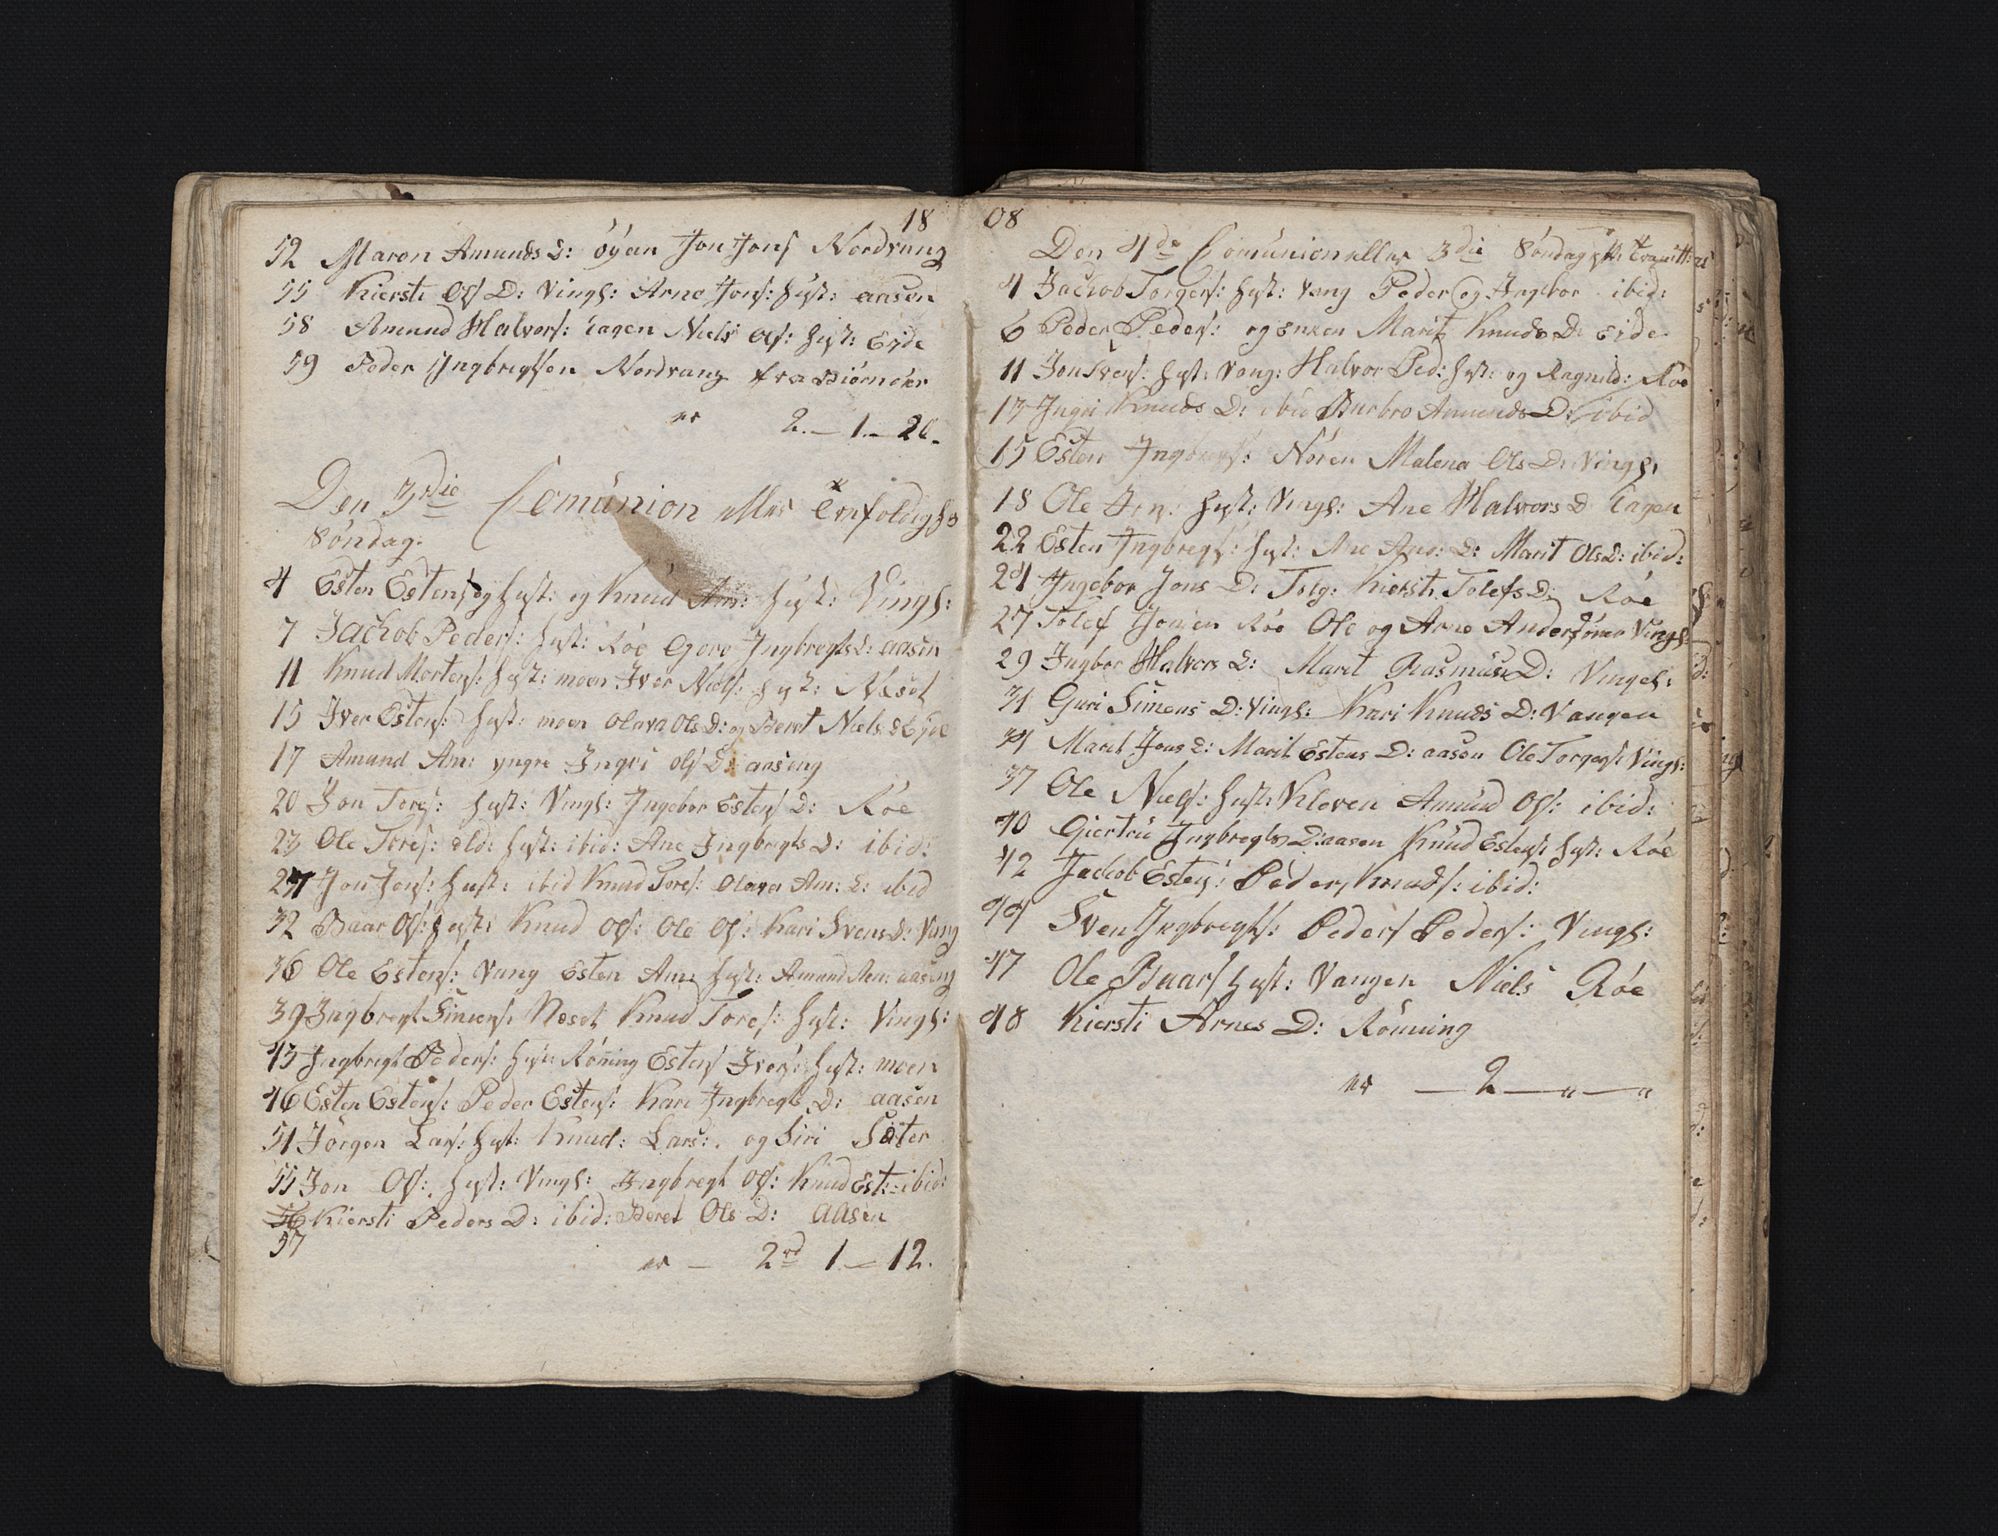 18
52 Maron Amunds D: öÿen Jon Jons Nordvang
55 Kiersti Ols D: Vingl: Arne Jons: hust: aasen
58 Amund Halvors: Eagen Niels Ols: hust: Eide
59 Peder Ingbregtsen Nordvang fra Biörnöer
er 2.—1.—20.
Den 3die Comunion eller Trefoldigh:
Söndag.
4 Esten Estens og hust: og Knud Am: hust: Vingl:
7 Jachob Peders: hust: Röe Goro Ingbregts D: aasen
11 Knud Mortens: hust: moen Iver Niels: hust: Neset
15 Iver Estens: hust: moen Olava Ols D: og Beret Niels D Eide
17 Amund Am: yngre Ingri Ols D: aaseng
20 Jon Tores: hust: Vingl: Ingebor Estens D: Röe
23 Ole Tores: eld: hust: ibid: Ane Ingbregts D: ibid:
27 Jon Jons: hust: ibid Knud Tores: Olava Am: D: ibid
32 Baar Ols: hust: Knud Ols: Ole Ols: Kari Svens D: Vang
36 Ole Estens: Vang Esten Am: hust: Amund Am: aaseng
39 Ingbregt Simens: Neset Knud Tores: hust: Vingl:
43 Ingbregt Peders: hust: Röning Estens Ivers: hust: moen
46 Esten Estens: Peder Estens: Kari Ingbregts D: aasen
51 Jörgen Lars: hust: Knud: Lars: og Siri Säter
55 Jon Ols: hust: Vingl: Ingbregt Ols: Knud Est: ibid:
56 Kiersti Peders D: ibid: Beret Ols D: aasen
57
er — 2rd 1—12.
08
Den 4de Comunion eller 3die Söndag
4 Jachob Torgers: hust: Vang Peder og Ingebor ibid:
6 Peder Peders: og Marit Knuds D: Eide
11 Jon Svens: hust: Vang: Halvor Ped: hust: og Ragnild: Röe
13 Ingri Knuds D: ibid Barbro Amunds D: ibid
15 Esten Ingbregts: Nören Malena Ols D: Vingl:
18 Ole Jens: hust: Vingl: Ane Halvors D Eagen
22 Esten Ingbregts: hust: Ane D: Marit Ols D: ibid:
24 Ingebor Jons D: Tolg: Kiersti Tolefs D: Röe
27 Tolef Röe Ole og Arne Vingl:
29 Ingbor Halvors D: Marit Rasmus D: Vingel:
31 Guri Simens D: Vingl: Kari Knuds D: Vangen
34 Marit Jons D: Marit Estens D: aasen Ole Torgers: Vingl:
37 Ole Niels: hust: Kleven Amund Ols: ibid:
40 Giertru Ingbregts D: aasen Knud Estens: hust: Röe
42 Jachob Estens: Peder Knuds: ibid:
44 Sven Ingbregts: Peders Peders: Vingl:
47 Ole Baars hust: Vangen Niels Röe
48 Kiersti Arnes D: Rönning
er — 2 — „ — „